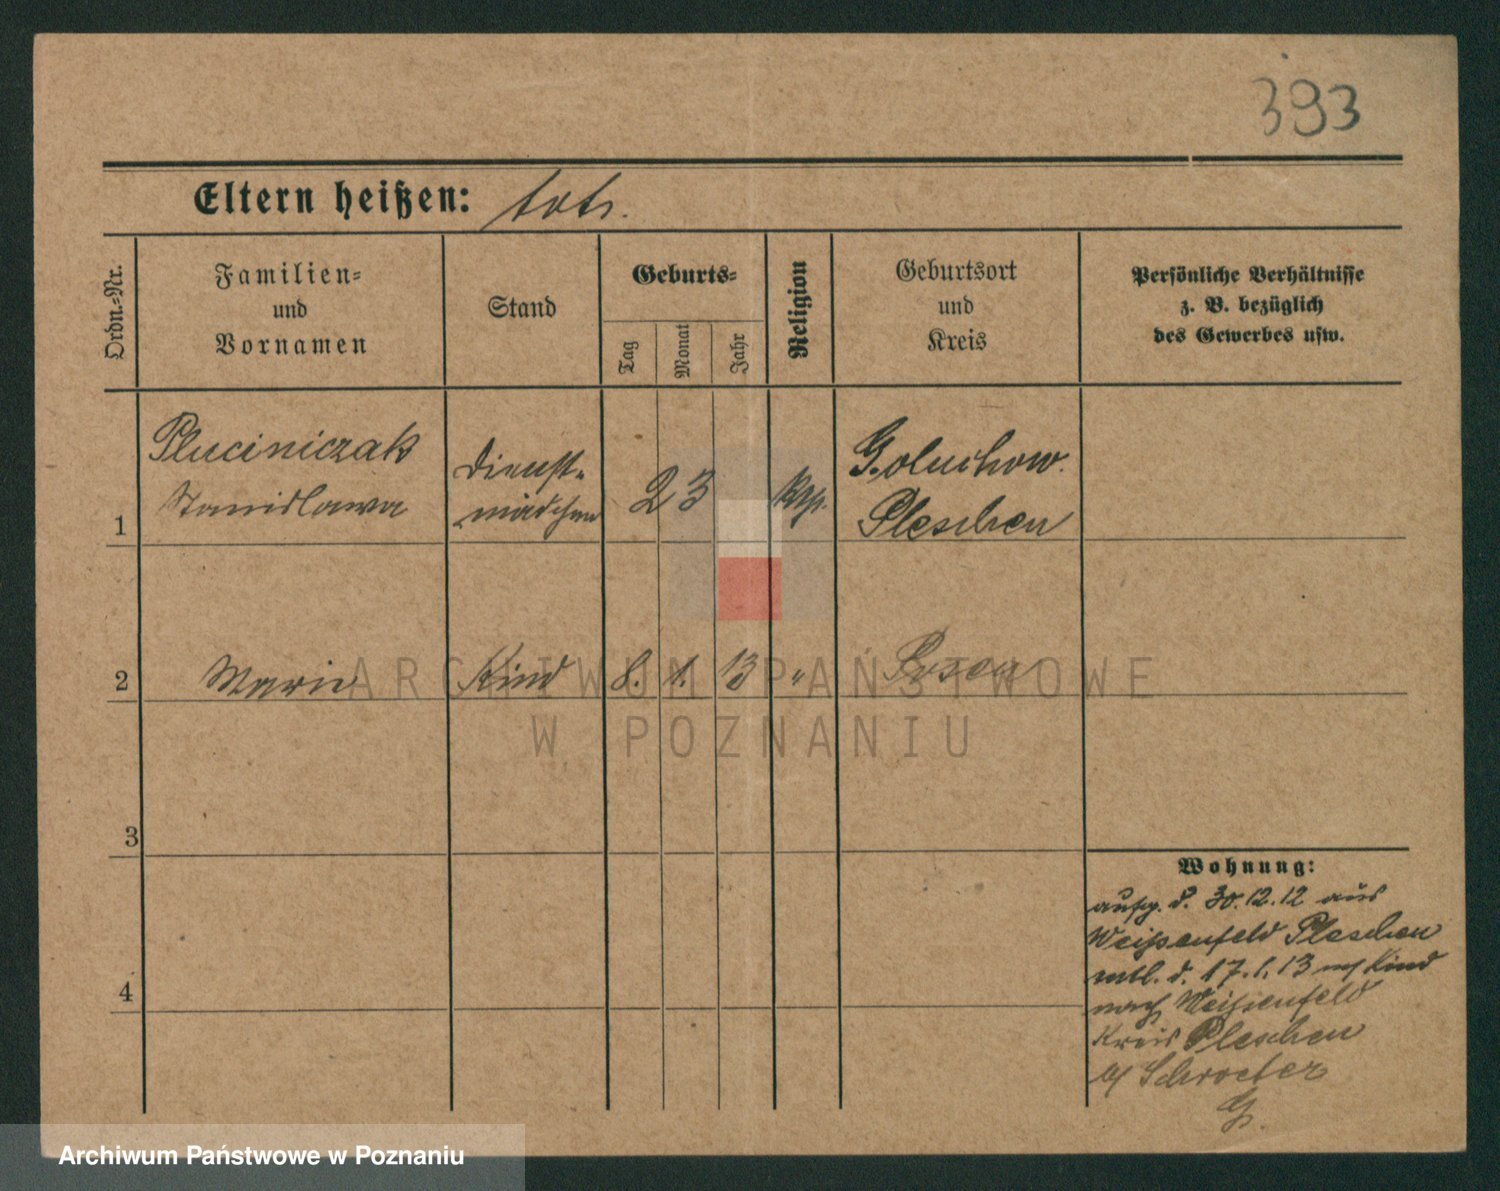 393
Eltern heißen: tot.
Ordn.-Nr.
Familien-
und
Vornamen
Stand
Geburts-
Tag
Monat
Jahr
Religion
Geburtsort
und
Kreis
Persönliche Verhältnisse
z. B. bezüglich
des Gewerbes usw.
1
Pluciniczak
Stanislawa
Dienst-
mädchen
23
kth.
Goluchow.
Pleschen
2
Marie
Kind
8. 1. 13
"
Posen
3
4
Wohnung:
d. 30.12.12 aus
Weißenfeld Pleschen
d. 17.1.13 Kind
nach Weißenfeld
Kreis Pleschen
b/ Schroeter
G.
ARCHIWUM PAŃSTWOWE
W POZNANIU
Archiwum Państwowe w Poznaniu